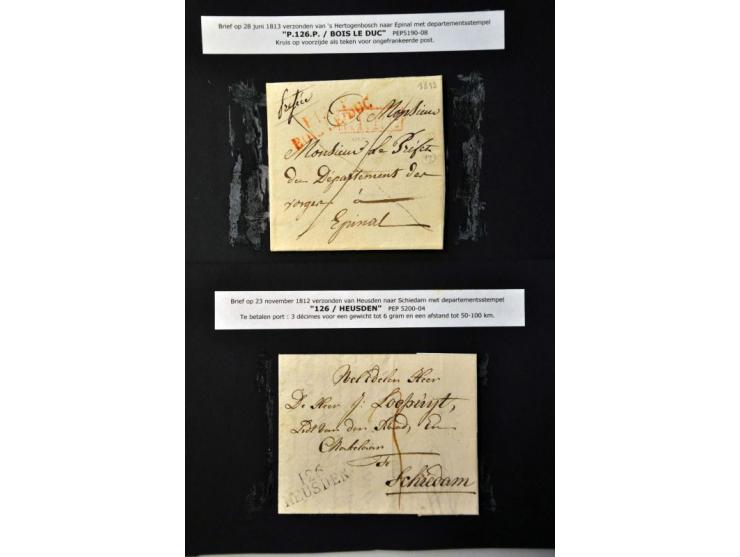 Brief op 28 juni 1813 verzonden van 's Hertogenbosch naar Epinal met departementsstempel
"P.126.P. / BOIS LE DUC" PEP5190-08
Kruis op voorzijde als teken voor ongefrankeerde post.
1813
BOIS-LE-DUC
Monsieur
Monsieur le Préfet
du Département des
vosges à
Epinal
Brief op 23 november 1812 verzonden van Heusden naar Schiedam met departementsstempel
"126 / HEUSDEN" PEP 5200-04
Te betalen port : 3 décimes voor een gewicht tot 6 gram en een afstand tot 50-100 km.
Wel Edelen Heer
De Heer J: Loopuijt,
van den Raad, En
Te
Schiedam
126
HEUSDEN